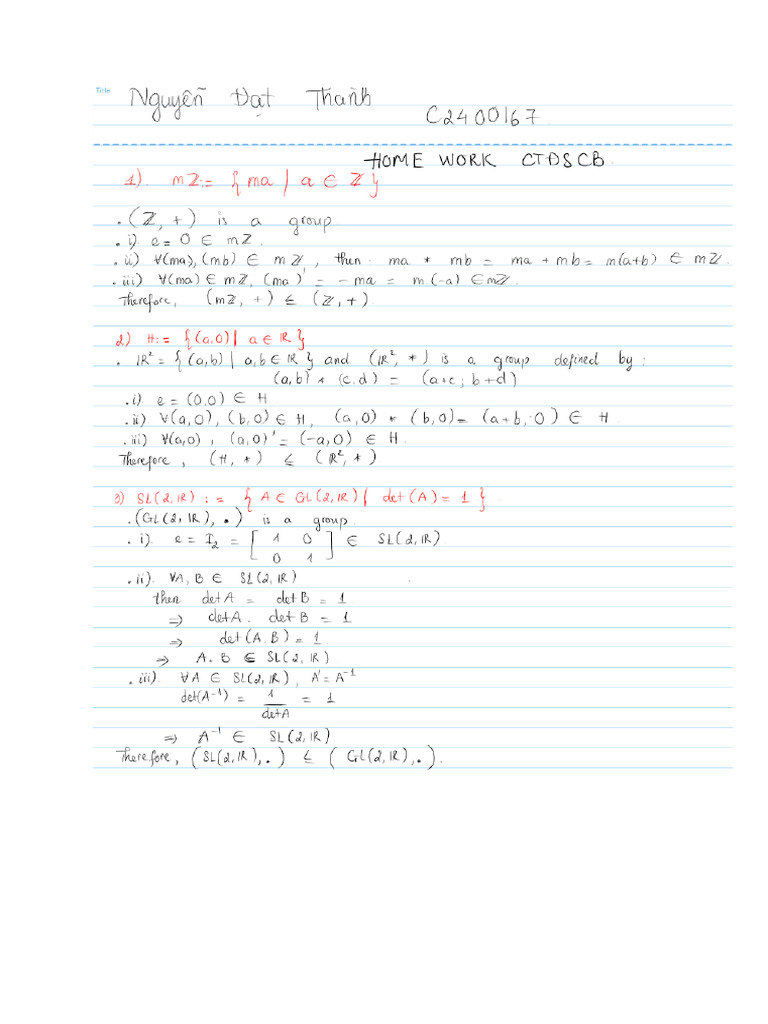 Title
Nguyễn Đạt Thành
C2400167.
HOME WORK CTĐSCB.
1). mℤ:= {ma | a ∈ ℤ}
.(ℤ, +) is a group
.i) e = 0 ∈ mℤ.
.ii) ∀(ma),(mb) ∈ mℤ, then ma * mb = ma + mb = m(a+b) ∈ mℤ.
.iii) ∀(ma) ∈ mℤ, (ma)' = -ma = m(-a) ∈ mℤ.
Therefore, (mℤ, +) ≤ (ℤ, +).
2) H:= {(a,0) | a ∈ ℝ}
. ℝ² = {(a,b) | a,b ∈ ℝ} and (ℝ², *) is a group defined by:
(a,b) * (c,d) = (a+c; b+d)
.i) e = (0,0) ∈ H
.ii) ∀(a,0), (b,0) ∈ H, (a,0) * (b,0) = (a+b, 0) ∈ H.
.iii) ∀(a,0), (a,0)' = (-a,0) ∈ H.
Therefore, (H, *) ≤ (ℝ², *).
3) SL(2,ℝ) := {A ∈ GL(2,ℝ) | det(A) = 1}.
.(GL(2,ℝ), .) is a group.
. i). e = I₂ = [1 0
0 1] ∈ SL(2,ℝ)
.ii). ∀A, B ∈ SL(2,ℝ)
then detA = detB = 1
=> detA . detB = 1
=> det(A.B) = 1
=> A.B ∈ SL(2,ℝ)
.iii). ∀A ∈ SL(2,ℝ), A' = A⁻¹
det(A⁻¹) = 1/detA = 1
=> A⁻¹ ∈ SL(2,ℝ)
Therefore, (SL(2,ℝ), .) ≤ (GL(2,ℝ), .).